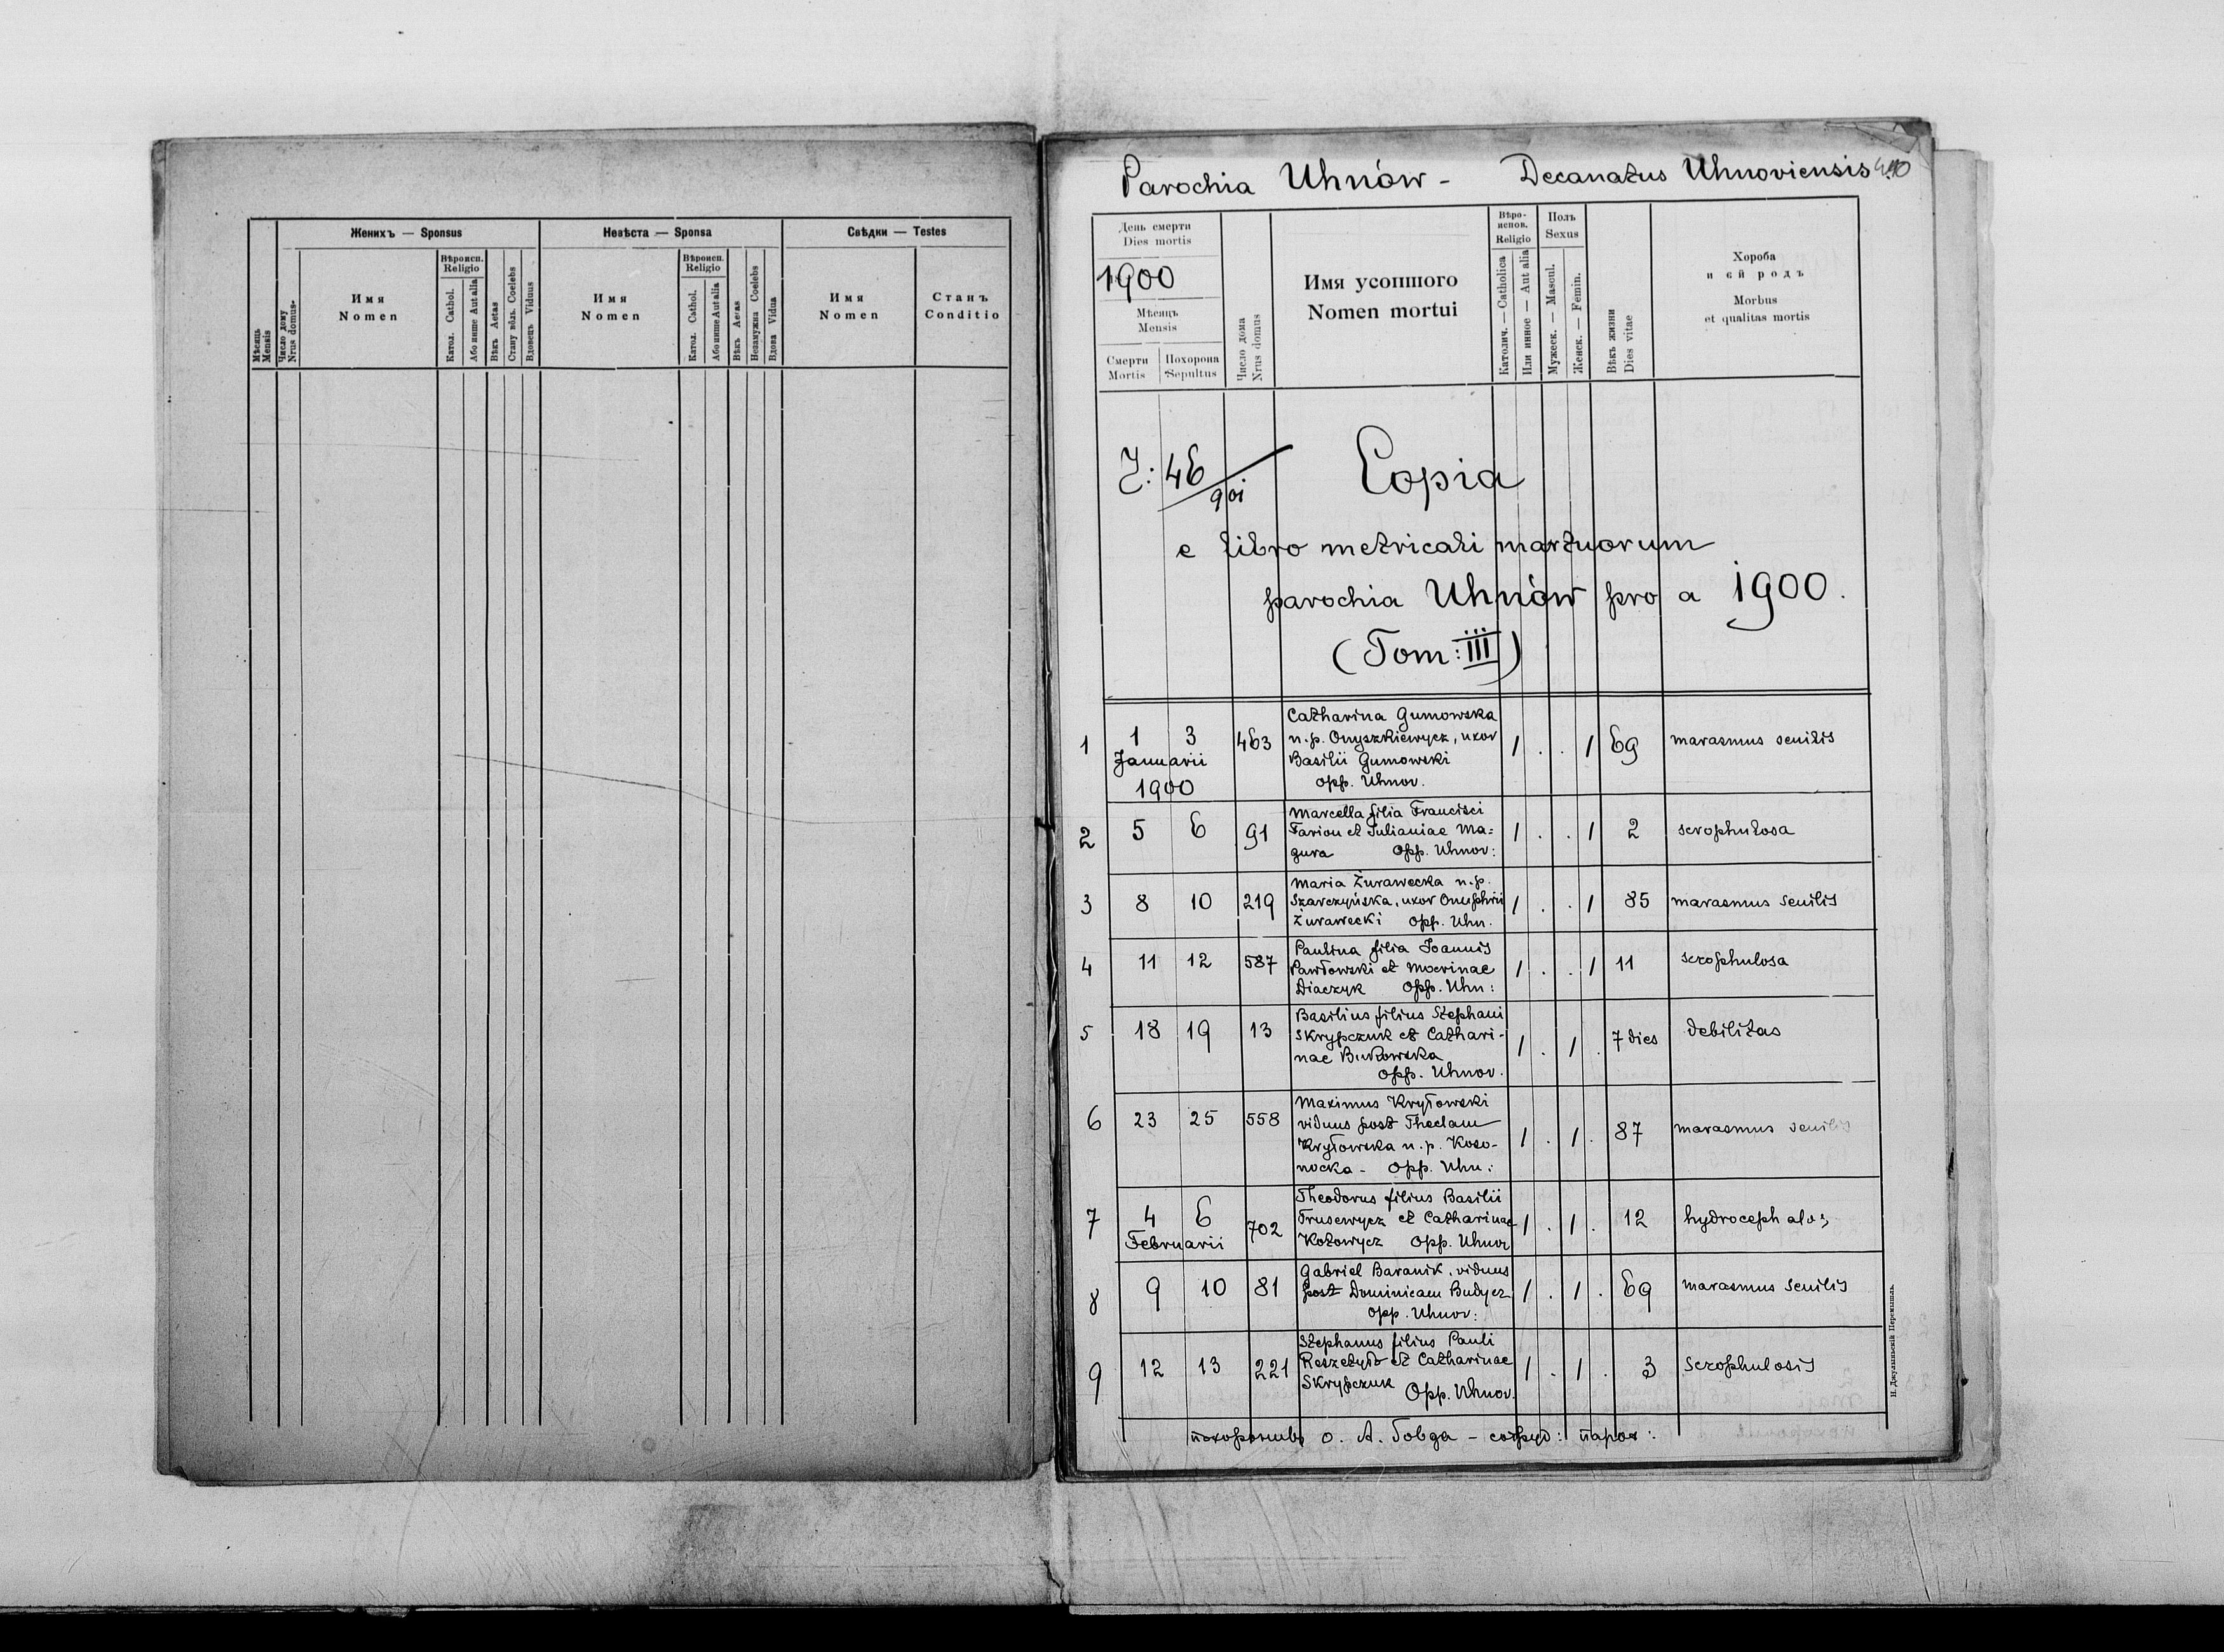 Женихъ — Sponsus
Невѣста — Sponsa
Свѣдки — Testes
Мѣсяць
Mensis
Число дому
Nrus domus
Имя
Nomen
Вѣроисп.
Religio
Катол. Cathol.
Або инше Aut alia
Вѣкъ Aetas
Стану вôль. Coelebs
Вдовець Viduus
Имя
Nomen
Вѣроисп.
Religio
Катол. Cathol.
Або инше Aut alia
Вѣкъ Aetas
Незамужна Coelebs
Вдова Vidua
Имя
Nomen
Станъ
Conditio
Parochia Uhnów - Decanatus Uhnoviensis
День смерти
Dies mortis
1900
Мѣсяцъ
Mensis
Смерти
Mortis
Похорона
Sepultus
Число дома
Nrus domus
Имя усопшого
Nomen mortui
Вѣро-
испов.
Religio
Католич. — Catholica
Или инное — Aut alia
Полъ
Sexus
Мужеск. — Mascul.
Женск. — Femin.
Вѣкъ жизни
Dies vitae
Хороба
и єй родъ
Morbus
et qualitas mortis
J: 46/901 Copia
e libro metricali mortuorum
parochia Uhnów pro a 1900.
(Tom: III)
1 1 3 463 Catharina Gumowska / . . / 69 marasmus senilis
Januarii n.p. Onyszkiewycz, uxor
1900 Basilii Gumowski
opp. Uhnov.
2 5 6 91 Marcella filia Francisci / . . / 2 scrophulosa
Farion et Julianiae Ma=
gura Opp. Uhnov:
3 8 10 219 Maria Żurawecka n.p. / . . / 85 marasmus senilis
Szarczyńska, uxor Onuphrii
Żurawecki Opp. Uhn.
4 11 12 587 Paulina filia Joannis / . . / 11 scrophulosa
Pawłowski et Mocrinae
Diaczyk Opp. Uhn:
5 18 19 13 Basilius filius Stephani / . / . 7 dies debilitas
Skrypczuk et Cathari-
nae Bukowska
opp. Uhnov.
6 23 25 558 Maximus Kryłowski / . / . 87 marasmus senilis
viduus post Theclam
Kryłowska n.p. Koso-
nocka - Opp. Uhn:
7 4 6 702 Theodorus filius Basilii / . / . 12 hydrocephalos
Februarii Trusewycz et Catharinae
Kotowycz Opp. Uhnov
8 9 10 81 Gabriel Baranik, viduus / . / . 69 marasmus senilis
post Dominicam Budycz
opp. Uhnov:
9 12 13 221 Stephanus filius Pauli / . / . 3 Scrophulosis
Reszetyło et Catharinae
Skrypczuk Opp. Uhnov.
похоронивъ о. А. Говда - сотруд: парох:
Н. Джулыньскій Перемышль.